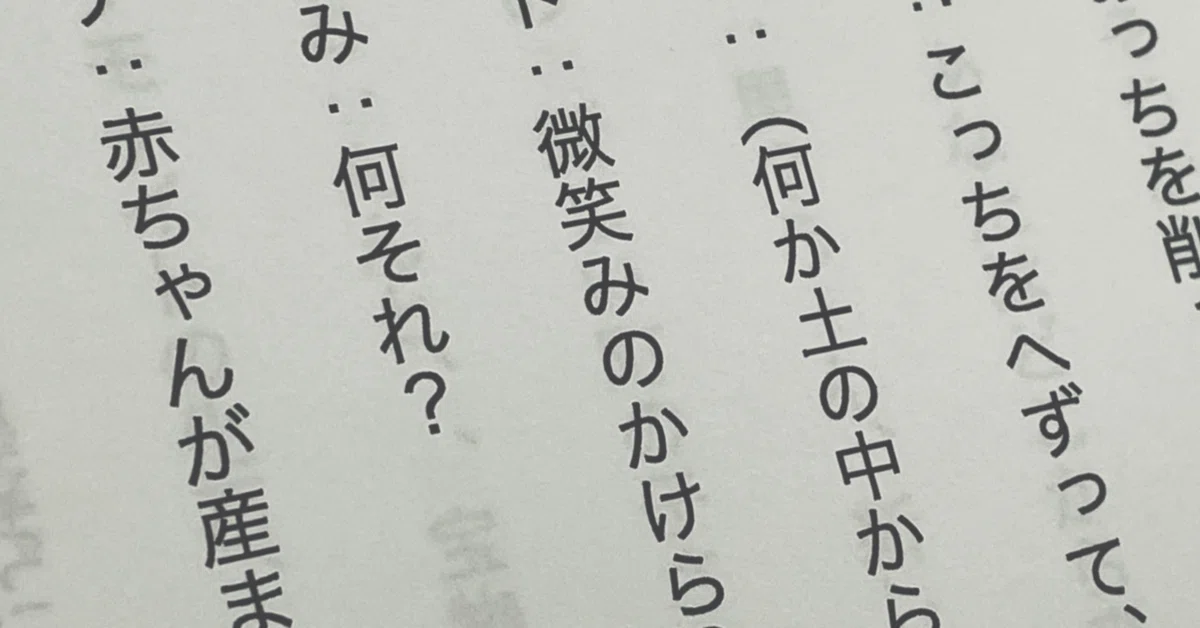 っちを削
：こっちをへずって、
：（何か土の中から
：微笑みのかけら
み：何それ？
：赤ちゃんが産ま